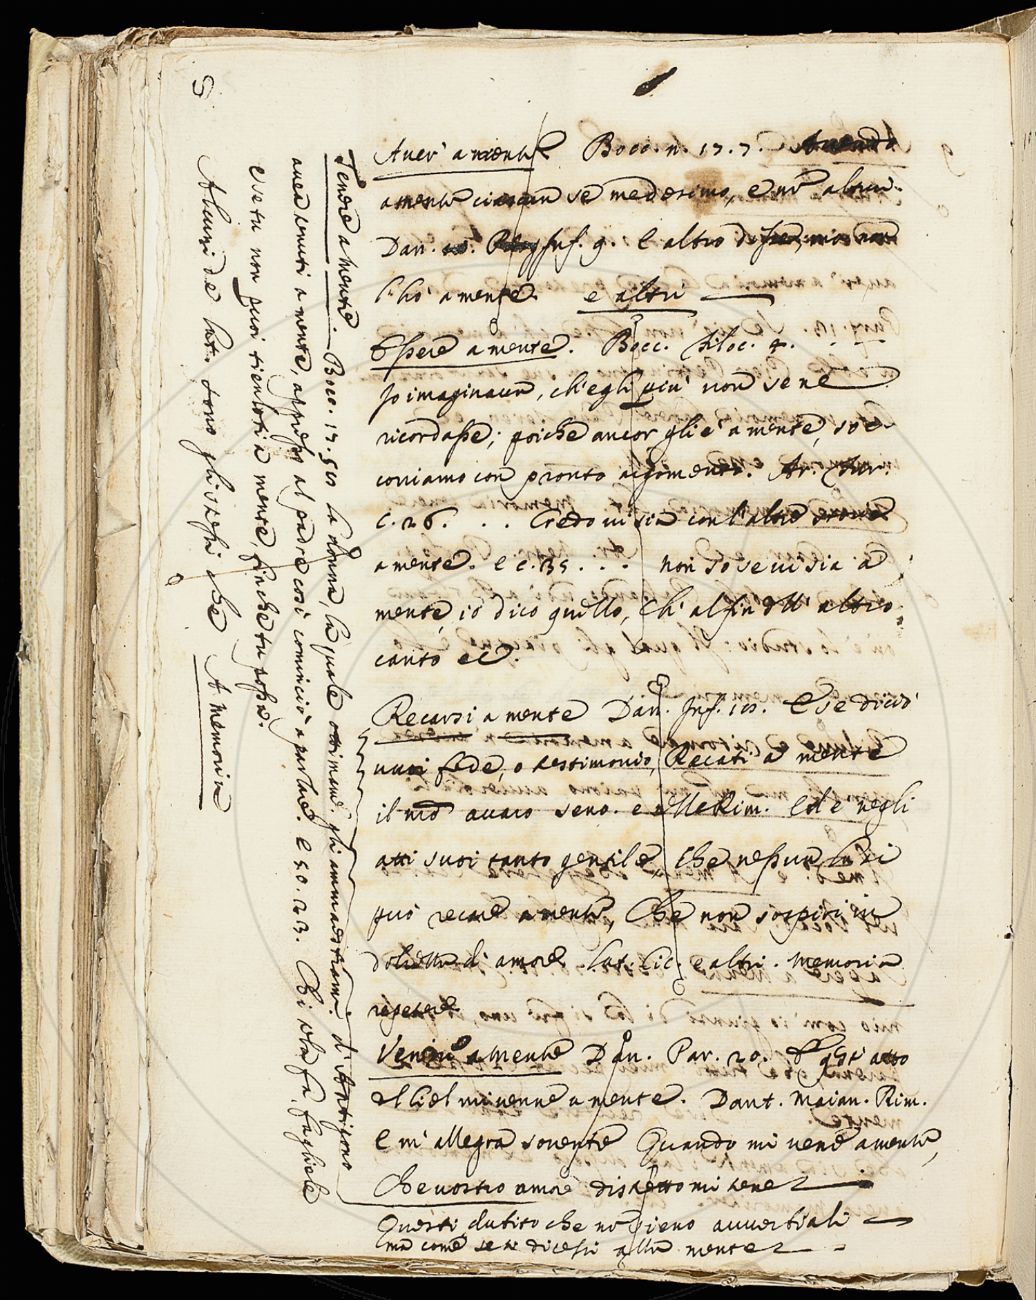 Aver' a mente Bocc. n. 17. 7.
a mente ciascun se medesimo, e nō alcun.
Dan. Inf. 9. E altro disse, ma non
l'hò a mente. e altri
Essere a mente. Bocc. Filoc. 4.
Io imaginava, ch'egli più non se ne
ricordasse; poiche ancor gli è a mente, soc-
coriamo con pronto argomento. Ar. Fur.
C. 26. . . Credo vi sia con l'altre
a mente. e c. 35 . . . non so se vi sia a
mente, io dico quello, Ch' al fin dell' altro
canto ec.
Recarsi a mente Dan. Inf. 18. E se di ciò
vuoi fede, o testimonio, Recati a mente
il nr̄o avaro seno. e elle Rim. Ed è negli
atti suoi tanto gentile, Che nessun la si
può recare a mente, Che non sospiri in
dolcezza di amore. Lat. Cic. e altri. Memoria
repetere.
Venire a mente Dan. Par. 20. E q̄sto atto
del Ciel mi venne a mente. Dant. Maian. Rim.
E m' allegra sovente Quando mi vene a mente,
Che vostro amore distretto mi tene
Questi, dubito che nō sieno avverbiali
ma come se si dicessi alla mente
Tenere a mente. Bocc. 17. 50 la donna, la quale ottimam̄. gli ammaestram̄. d'Antigono
avea tenuti a mente, appresso al padre così cominciò a parlare. E 50. 23. Chi te la fa, fagliele
e se tu non puoi tienloti a mente, finche tu possa.
Alcuni de Lat. sono gli stessi che A memoria